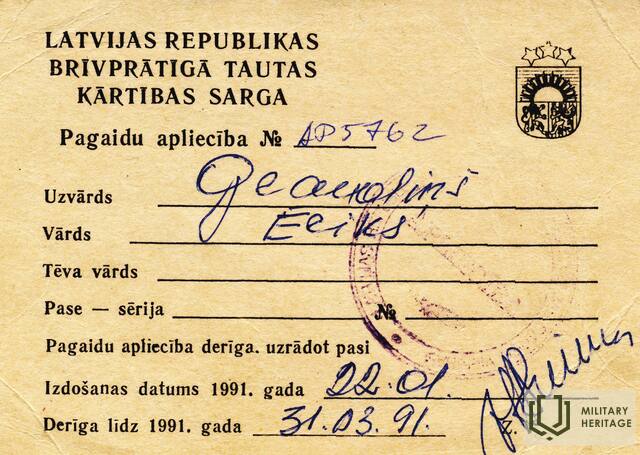 LATVIJAS REPUBLIKAS
BRĪVPRĀTĪGĀ TAUTAS
KĀRTĪBAS SARGA
Pagaidu apliecība № AP5762
Uzvārds
Vārds Ēriks
Tēva vārds
Pase — sērija №
Pagaidu apliecība derīga. uzrādot pasi
Izdošanas datums 1991. gada 22.01.
Derīga līdz 1991. gada 31.03.91.
Z.
MILITARY
HERITAGE